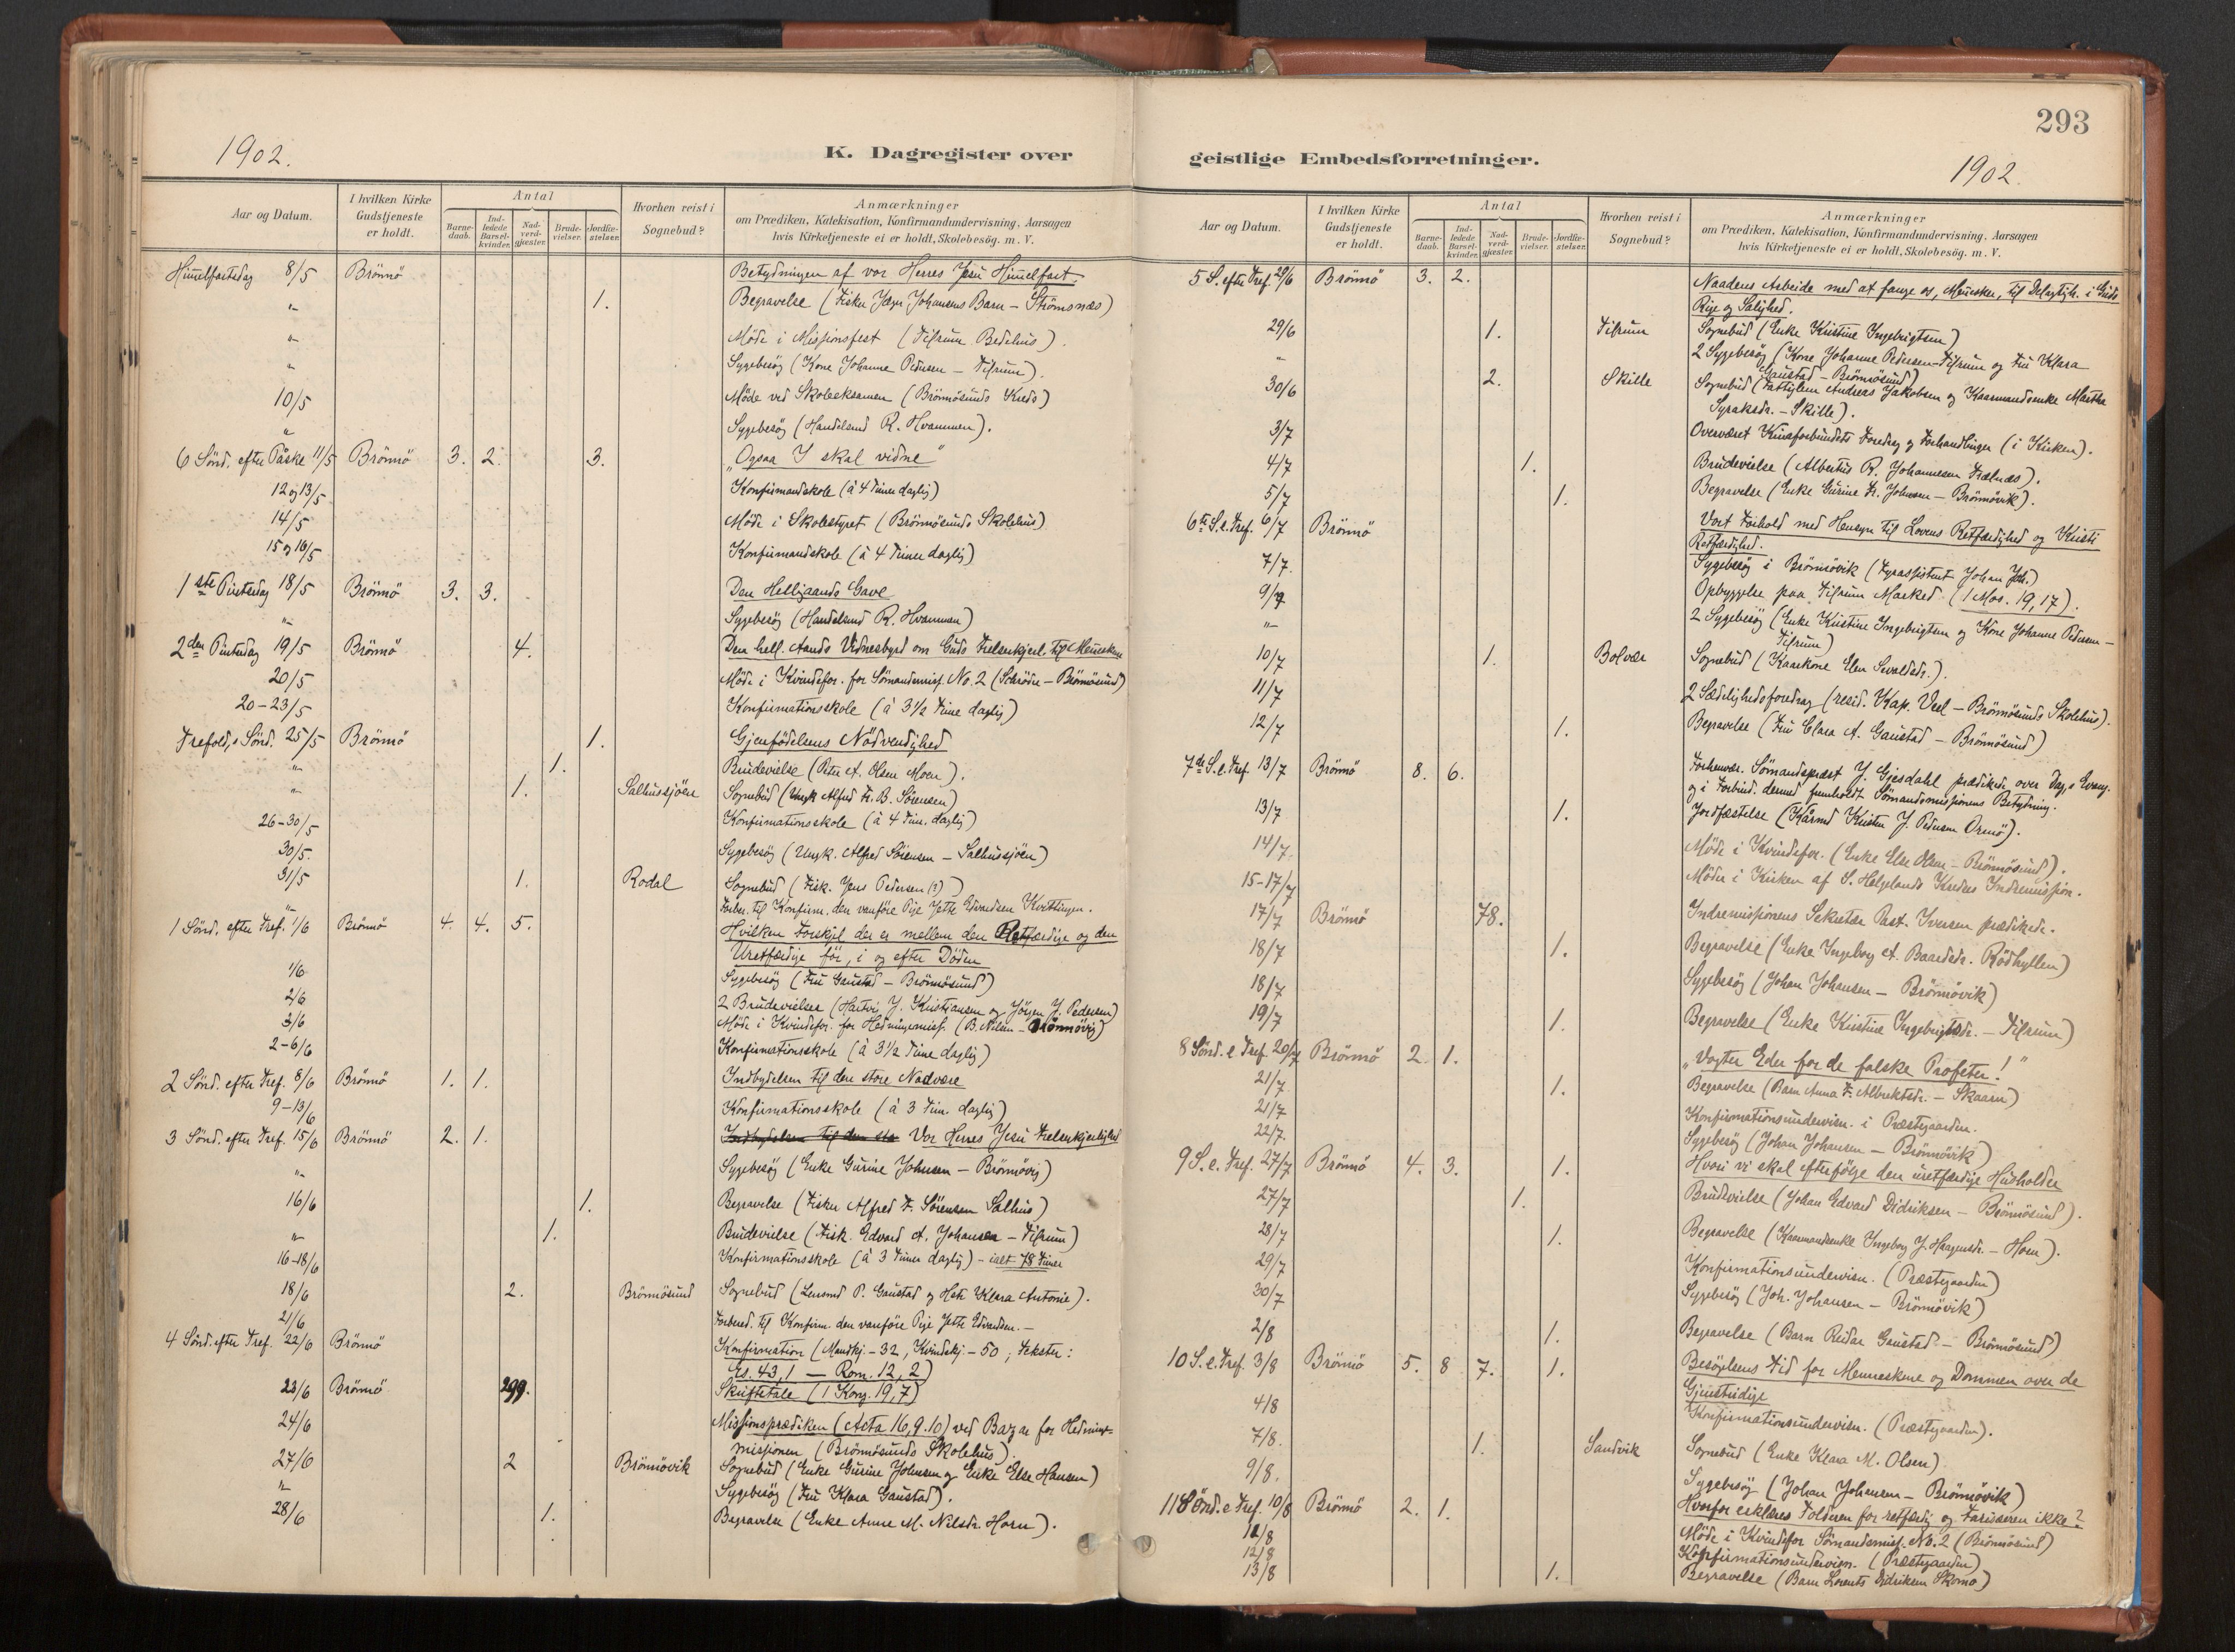 1902.
K. Dagregister over
Aar og Datum.
I hvilken Kirke Gudstjeneste er holdt.
Antal
Barne-daab.
Ind-ledede Barsel-kvinder.
Nad-verd-gjester.
Brude-vielser.
Jordfæ-stelser.
Hvorhen reist i Sognebud?
Anmærkninger
om Prædiken, Katekisation, Konfirmandundervisning, Aarsagen
hvis Kirketjeneste ei er holdt, Skolebesög. m. V.
Himelfartsdag 8/5 Brönnö Betydningen af vor Herres Jesu Himelfart.
" 1. Begravelse (Fisker Jægr Johansens Barn – Strömsnæs)
" Möde i Missionsfest (Tilrum Bedehus).
" Sygebesög (Kone Johanne Pedersen – Tilrum).
10/5 Möde ved Skoleeksamen (Brönnösunds Kreds)
" Sygebesög (Handelsmd R. Hvammen).
6 Sönd. efter Påske 11/5 Brönnö 3. 2. 3. "Ogsaa I skal vidne"
12 og 13/5 Konfirmandskole (à 4 Timer daglig)
14/5 Möde i Skolestyret (Brönnösunds Skolehus)
15 og 16/5 Konfirmandskole (à 4 Timer daglig)
1ste Pintsedag 18/5 Brönnö 3. 3. Den Helligaands Gave
" Sygebesög (Handelsmd R. Hvammen)
2den Pintsedag 19/5 Brönnö 4. Den hell. Aands Vidnesbyrd om Guds Frelserkjerl. til Menesken
20/5 Möde i Kvindefor. for Sömandsmiss. No. 2 (Schröder – Brönnösund)
20–23/5 Konfirmationsskole (à 3 1/2 Time daglig)
Trefold.s Sönd. 25/5 Brönnö 1. Gjenfödelsens Nödvendighed
" 1. Brudevielse (Peter A. Olsen Moen).
" 1. Salhussjöen Sognebud (Ungk Alfred Fr. B. Sörensen)
26–30/5 Konfirmationsskole (à 4 Tim. daglig)
30/5. Sygebesög (Ungk. Alfred Sörensen – Salhussjöen)
31/5 1. Rodal Sognebud (Fisk. Jens Pedersen (?))
" Forber. til Konfirm. den vanföre Pige Jette Edvardsen Kvittingen.
1 Sönd. efter Tref. 1/6 Brönnö 4. 4. 5. Hvilken Forskjel der er mellem den Retfærdige og den
Uretfærdige för, i og efter Döden
1/6 Sygebesög (Fru Gaustad – Brönnösund)
2/6 2 Brudevielser (Hartvi J. Kristiansen og Jörgen J. Pedersen)
3/6 Möde i Kvindefor. for Hedningemiss. (B. Nilsen – Brönnövig)
2–6/6 Konfirmationsskole (à 3 1/2 Time daglig)
2 Sönd. efter Tref. 8/6 Brönnö 1. 1. Indbydelsen til den store Nadvere
9–13/6 Konfirmationsskole (à 3 Tim. daglig)
3 Sönd. efter Tref. 15/6 Brönnö 2. 1. Indbydelsen til den sto Vor Herres Jesu Frelserkjerlighed
" Sygebesög (Enke Gurine Johnsen – Brönnövig)
16/6 1. Begravelse (Fisker Alfred F. Sörensen Salhus)
" 1. Brudevielse (Fisk. Edvard A. Johansen – Tilrum)
16–18/6 Konfirmationsskole (à 3 Timer daglig) – ialt 78 Timer
18/6 2. Brönnösund Sognebud (Lensmd P. Gaustad og Hstr Klara Antonie).
21/6 Forbered. til Konfirm. den vanföre Pige Jette Edvardsen. –
4 Sönd. efter Tref. 22/6 Brönnö Konfirmation (Mandkj. – 32, Kvindekj. – 50; Tekster:
Es. 43,1 — Rom. 12,2)
23/6 Brönnö 299. Skriftetale (1 Kong. 19,7)
24/6 Missionsprædiken (Acta 16,9.10) ved Bazar for Hednings-
missionen (Brönnösunds Skolehus)
27/6 2 Brönnövik Sognebud (Enke Gurine Johnsen og Enke Else Hansen)
" Sygebesög (Fru Klara Gaustad).
28/6 1. Begravelse (Enke Anne M. Nilsdr. Horn).
293
geistlige Embedsforretninger.
1902.
Aar og Datum.
I hvilken Kirke Gudstjeneste er holdt.
Antal
Barne-daab.
Ind-ledede Barsel-kvinder.
Nad-verd-gjester.
Brude-vielser.
Jordfæ-stelser.
Hvorhen reist i Sognebud?
Anmærkninger
om Prædiken, Katekisation, Konfirmandundervisning, Aarsagen
hvis Kirketjeneste ei er holdt, Skolebesög. m. V.
5 S. efter Tref. 29/6 Brönnö 3. 2. Naadens Arbeide med at fange os, Mennesker, til Delagtigh. i Guds
Rige og Salighed.
29/6 1. Tilrum Sognebud (Enke Kristine Ingebrigtsen)
" 2 Sygebesög (Kone Johanne Pedersen – Tilrum og Fru Klara
Gaustad – Brönnösund)
30/6 2. Skille Sognebud (Fattiglem Andreas Jakobsen og Kaarmandsenke Marthe
Syraksdr. – Skille).
3/7 Overværet Kinaforbundets Foredrag og Forhandlinger (i Kirken).
4/7 1. Brudevielse (Albertus R. Johannesen Trælnæs).
5/7 1. Begravelse (Enke Gurine Fr. Johnsen – Brönnövik).
6te S. e. Tref. 6/7 Brönnö Vort Forhold med Hensyn til Lovens Retfærdighed og Kristi
Retfærdighed.
7/7. Sygebesög i Brönnövik (Fyrassistent Johan Joh.)
9/7 Opbyggelse paa Tilrum Marked (1 Mos. 19,17).
" 2 Sygebesög (Enke Kristine Ingebrigtsen og Kone Johanne Pedersen –
Tilrum)
10/7 1. Bolvær Sognebud (Kaarkone Elen Sivaldsdr.).
11/7 2 Sædelighedsforedrag (resid. Kap. Veel – Brönnösunds Skolehus).
12/7 1. Begravelse (Fru Clara A. Gaustad – Brönnösund)
7de S. e. Tref. 13/7 Brönnö 8. 6. Forhenvær. Sömandspræst J. Gjesdahl prædikede over Dag.s Evang.
og i Forbind. dermed fremholdt Sömandsmissionens Betydning.
13/7 1. Jordfæstelse (Kårmd Kristen J. Pedersen Ormö).
14/7. Möde i Kvindefor. (Enke Else Olsen – Brönnösund).
15–17/7 Möder i Kirken af S. Helgelands Kredses Indremission.
17/7 Brönnö 78. Indremissionens Sekretær Past. Iversen prædikede.
18/7 1. Begravelse (Enke Ingeborg A. Baardsdr. Rödhyllen)
18/7 Sygebesög (Johan Johansen – Brönnövik)
19/7 1. Begravelse (Enke Kristine Ingebrigtsdr. – Tilrum)
8 Sönd. e Tref. 20/7 Brönnö 2. 1. "Vogter Eder for de falske Profeter!"
21/7 1. Begravelse (Barn Anna F. Albrektsdr. – Skaaren)
21/7 Konfirmationsundervisn. i Præstegaarden.
22/7. Sygebesög (Johan Johansen – Brönnövik)
9 S. e. Tref. 27/7 Brönnö 4. 3. 1. Hvori vi skal efterfölge den uretfærdige Husholder
27/7 1. Brudevielse (Johan Edvard Didriksen – Brönnösund).
28/7 1. Begravelse (Kaarmandsenke Ingeborg J. Haagensdr. – Horn).
29/7 Konfirmationsundervisn. (Præstegaarden)
30/7 Sygebesög (Joh. Johansen – Brönnövik)
2/8 1. Begravelse (Barn Reidar Gaustad – Brönnösund)
10 S. e. Tref. 3/8 Brönnö 5. 8 7. 1. Besögelsens Tid for Menneskene og Dommen over de
Gjenstridige
4/8 Konfirmationsundervisn. (Præstegaarden).
7/8. 1. Sandvik Sognebud (Enke Klara M. Olsen)
9/8. Sygebesög (Johan Johansen – Brönnövik)
11 Sönd. e Tref. 10/8 Brönnö 2. 1. Hvorfor erklæres Tolderen for retfærdig og Farisæeren ikke?
11/8 Möde i Kvindefor Sömandsmiss. No. 2 (Brönnösund)
12/8 Konfirmationsundervisn. (Præstegaarden)
13/8 1. Begravelse (Barn Lorents Didriksen Skomo)